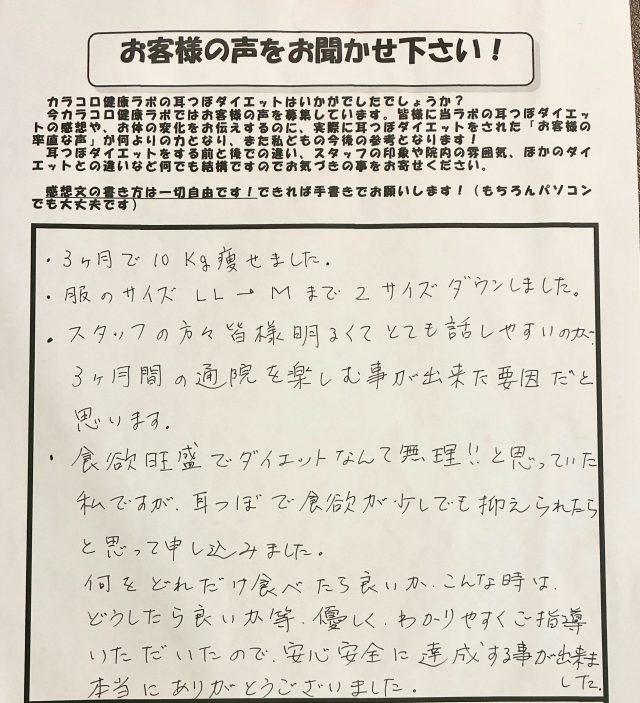 お客様の声をお聞かせ下さい！
カラコロ健康ラボの耳つぼダイエットはいかがでしたでしょうか？
今カラコロ健康ラボではお客様の声を募集しています。皆様に当ラボの耳つぼダイエッ
トの感想や、お体の変化をお伝えするのに、実際に耳つぼダイエットをされた「お客様の
率直な声」が何よりの力となり、また私どもの今後の参考となります！
耳つぼダイエットをする前と後での違い、スタッフの印象や院内の雰囲気、ほかのダイ
エットとの違いなど何でも結構ですのでお気づきの事をお寄せください。
感想文の書き方は一切自由です！できれば手書きでお願いします！（もちろんパソコン
でも大丈夫です）
・3ヶ月で10Kg痩せました。
・服のサイズ LL→Mまで2サイズダウンしました。
・スタッフの方々皆様明るくてとても話しやすいのが
3ヶ月間の通院を楽しむ事が出来た要因だと
思います。
・食欲旺盛でダイエットなんて無理!!と思っていた
私ですが、耳つぼで食欲が少しでも抑えられたら
と思って申し込みました。
何をどれだけ食べたら良いか、こんな時は、
どうしたら良いか等、優しく、わかりやすくご指導
いただいたので、安心安全に達成する事が出来ま
した。
本当にありがとうございました。